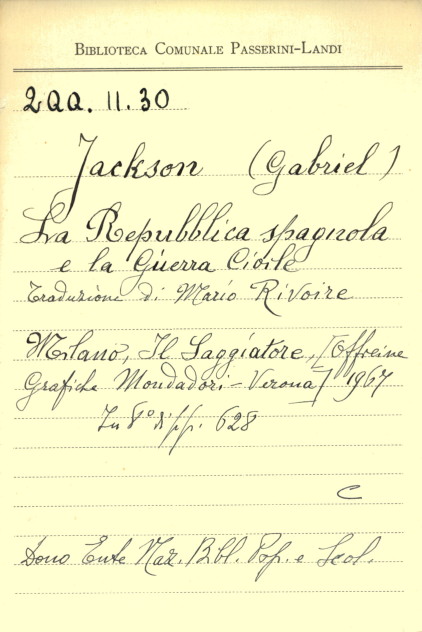 BIBLIOTECA COMUNALE PASSERINI-LANDI
2QQ. 11. 30
Jackson (Gabriel)
La Repubblica spagnola
e la Guerra Civile
Traduzione di Mario Rivoire
Milano, Il Saggiatore, [Officine
Grafiche Mondadori - Verona] 1967
In 8° di pp. 628
C
Dono Ente Naz. Bibl. Pop. e Scol.